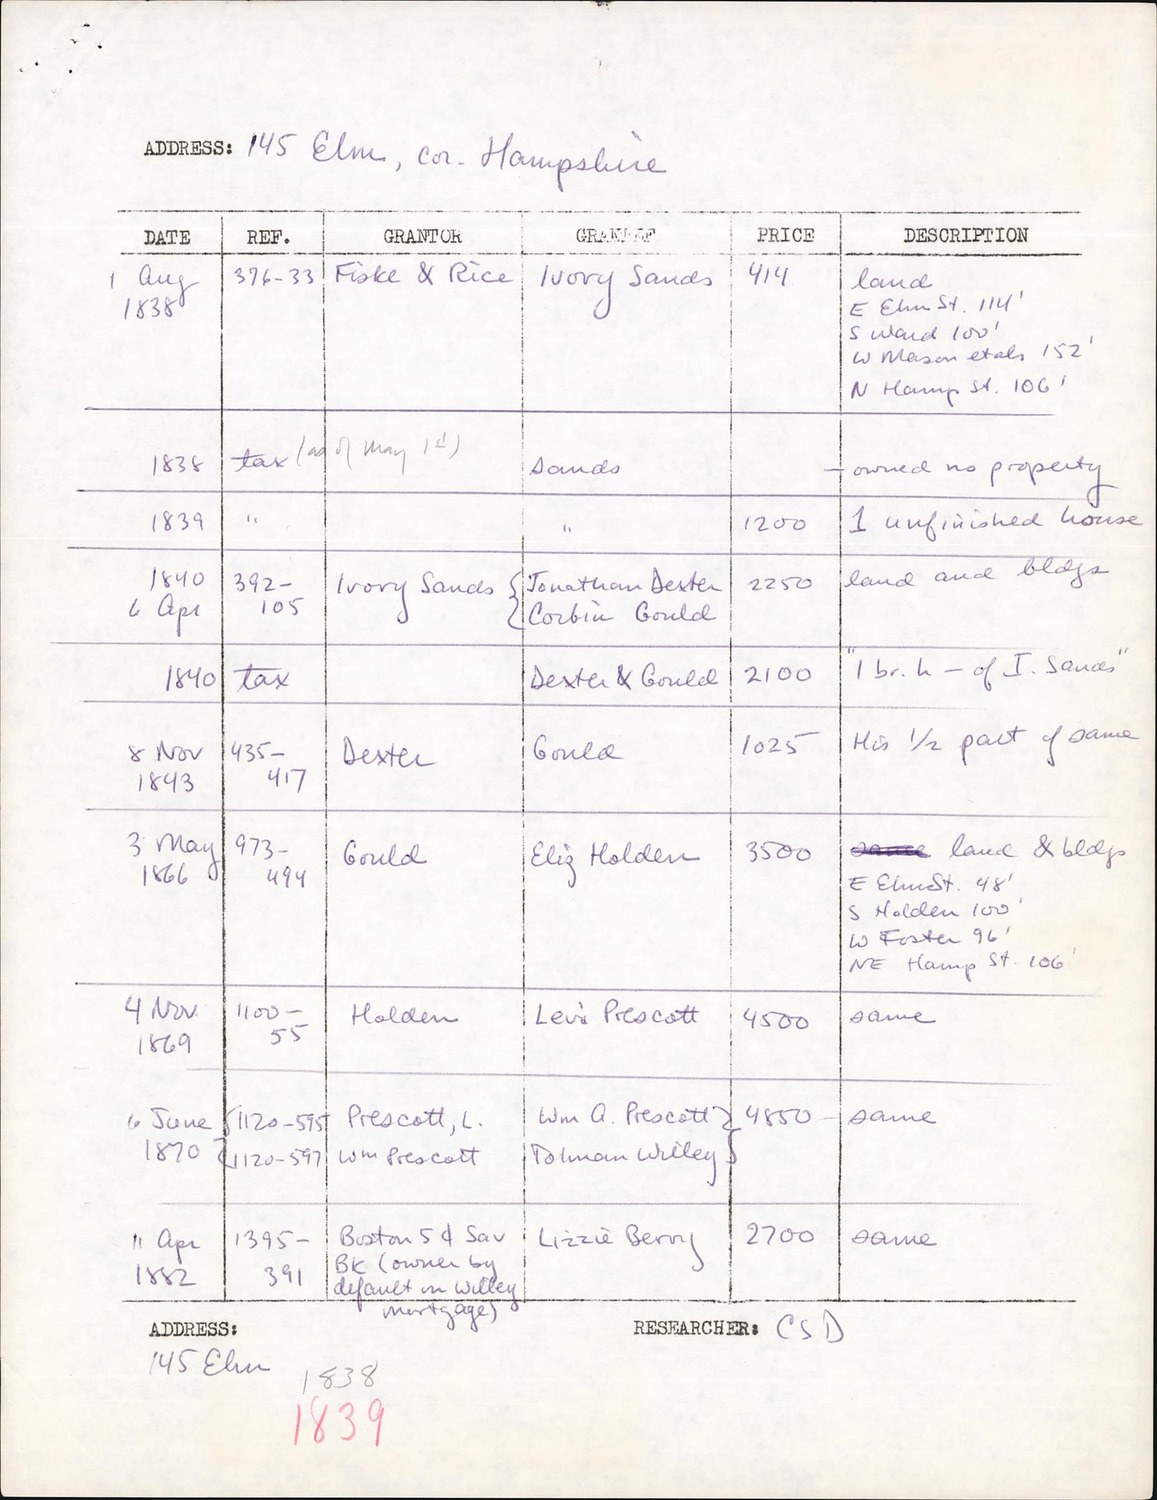 ADDRESS: 145 Elm, cor. Hampshire
DATE REF. GRANTOR GRANTEE PRICE DESCRIPTION
1 Aug 1838 376-33 Fiske & Rice Ivory Sands 414 land
E Elm St. 114'
S Ward 100'
W Mason et als 152'
N Hamp St. 106'
1838 tax (as of May 1st) Sands — owned no property
1839 " " 1200 1 unfinished house
1840 6 Apr 392-105 Ivory Sands { Jonathan Dexter 2250 land and bldgs
Corbin Gould
1840 tax Dexter & Gould 2100 "1 br. h — of I. Sands"
8 Nov 1843 435-417 Dexter Gould 1025 His 1/2 part of same
3 May 1866 973-494 Gould Eliz Holden 3500 same land & bldgs
E Elm St. 48'
S Holden 100'
W Foster 96'
NE Hamp St. 106'
4 Nov. 1869 1100-55 Holden Levi Prescott 4500 same
6 June 1870 { 1120-595 Prescott, L. Wm A. Prescott } 4850 — same
1120-597 Wm Prescott Tolman Willey
11 Apr 1882 1395-391 Boston 5¢ Sav Lizzie Berry 2700 same
BK (owner by
default on Willey
mortgage)
ADDRESS: RESEARCHER: CSD
145 Elm
1838
1839